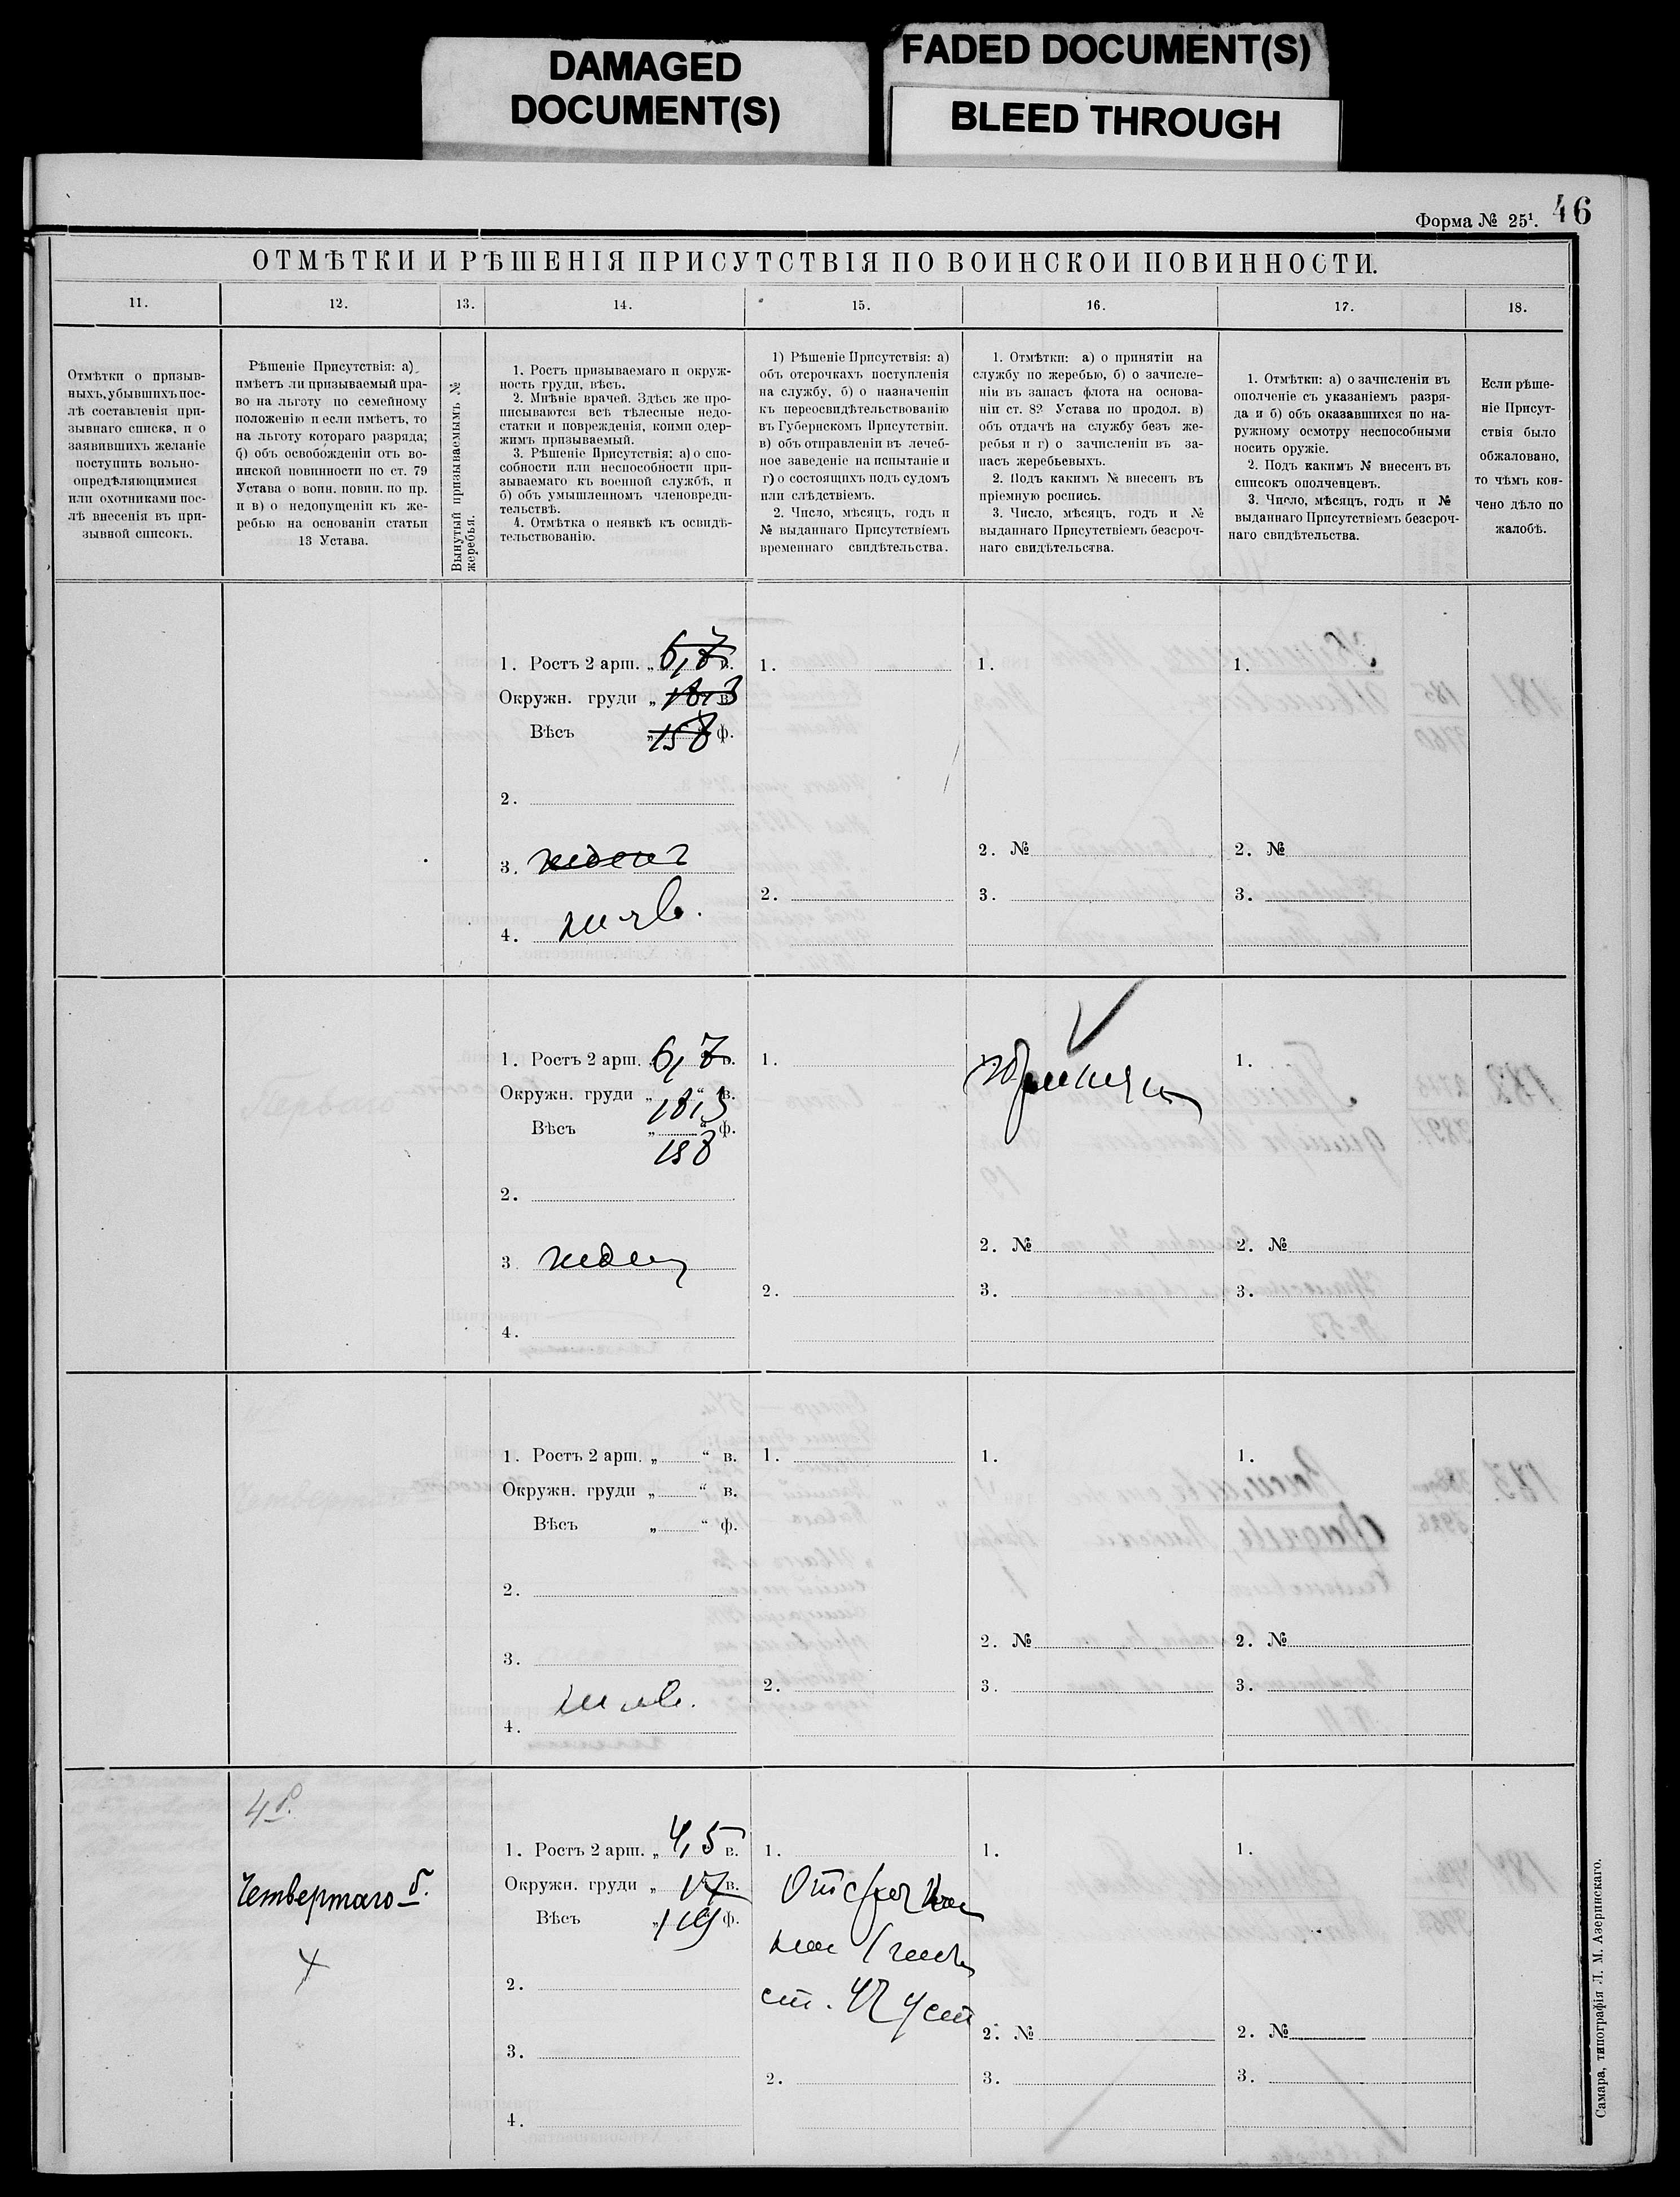 DAMAGED
DOCUMENT(S)
FADED DOCUMENT(S)
BLEED THROUGH
Форма № 25¹. 46
ОТМѢТКИ И РѢШЕНІЯ ПРИСУТСТВІЯ ПО ВОИНСКОИ ПОВИННОСТИ.
11. 12. 13. 14. 15. 16. 17. 18.
Отмѣтки о призыв-
ныхъ, убывшихъ пос-
лѣ составленія при-
зывнаго списка, и о
заявившихъ желаніе
поступить вольно-
опредѣляющимися
или охотниками пос-
лѣ внесенія въ при-
зывной списокъ.
Рѣшеніе Присутствія: а)
имѣетъ ли призываемый пра-
во на льготу по семейному
положенію и если имѣетъ, то
на льготу котораго разряда;
б) объ освобожденіи отъ во-
инской повинности по ст. 79
Устава о воин. повин. по пр.
и в) о недопущеніи къ же-
ребью на основаніи статьи
13 Устава.
Вынутый призываемымъ №
жеребья.
1. Ростъ призываемаго и окруж-
ность груди, вѣсъ.
2. Мнѣніе врачей. Здѣсь же про-
писываются всѣ тѣлесные недо-
статки и поврежденія, коими одер-
жимъ призываемый.
3. Рѣшеніе Присутствія: а) о спо-
собности или неспособности при-
зываемаго къ военной службѣ, и
б) объ умышленномъ членовреди-
тельствѣ.
4. Отмѣтка о неявкѣ къ освидѣ-
тельствованію.
1) Рѣшеніе Присутствія: а)
объ отсрочкахъ поступленія
на службу, б) о назначеніи
къ переосвидѣтельствованію
въ Губернскомъ Присутствіи.
в) объ отправленіи въ лечеб-
ное заведеніе на испытаніе и
г) о состоящихъ подъ судомъ
или слѣдствіемъ.
2. Число, мѣсяцъ, годъ и
№ выданнаго Присутствіемъ
временнаго свидѣтельства.
1. Отмѣтки: а) о принятіи на
службу по жеребью, б) о зачисле-
ніи въ запасъ флота на основа-
ніи ст. 82 Устава по продол. в)
объ отдачѣ на службу безъ же-
ребья и г) о зачисленіи въ за-
пасъ жеребьевыхъ.
2. Подъ какимъ № внесенъ въ
пріемную роспись.
3. Число, мѣсяцъ, годъ и №
выданнаго Присутствіемъ безсроч-
наго свидѣтельства.
1. Отмѣтки: а) о зачисленіи въ
ополченіе съ указаніемъ разря-
да и б) объ оказавшихся по на-
ружному осмотру неспособными
носить оружіе.
2. Подъ какимъ № внесенъ въ
списокъ ополченцевъ.
3. Число, мѣсяцъ, годъ и №
выданнаго Присутствіемъ безсроч-
наго свидѣтельства.
Если рѣше-
ніе Присут-
ствія было
обжаловано,
то чѣмъ кон-
чено дѣло по
жалобѣ.
1. Ростъ 2 арш. „ 6,7 в. 1. 1. 1.
Окружн. груди „ 18,3 в.
Вѣсъ „ 158 ф.
2.
3. годенъ 2. № 2. №
2. 3. 3.
4. неяв.
1. Ростъ 2 арш. 6,7 в. 1. принятъ 1.
Окружн. груди „ “ в.
18,3
Вѣсъ „ “ ф.
158
2.
3. годенъ 2. № 2. №
2. 3. 3.
4.
1. Ростъ 2 арш. „ “ в. 1. 1. 1.
Окружн. груди „ “ в.
Вѣсъ „ “ ф.
2.
3. 2. № 2. №
2. 3. 3.
неяв.
4.
4 р.
1. Ростъ 2 арш. „ 4,5 в. 1. 1. 1.
Четвертаго р. Окружн. груди „ 17 в. Отсрочка
Вѣсъ „ 119 ф.
ст. 47 Уст
2.
3. 2. № 2. №
2. 3. 3.
4.
Самара, типографія Л. М. Азеринскаго.